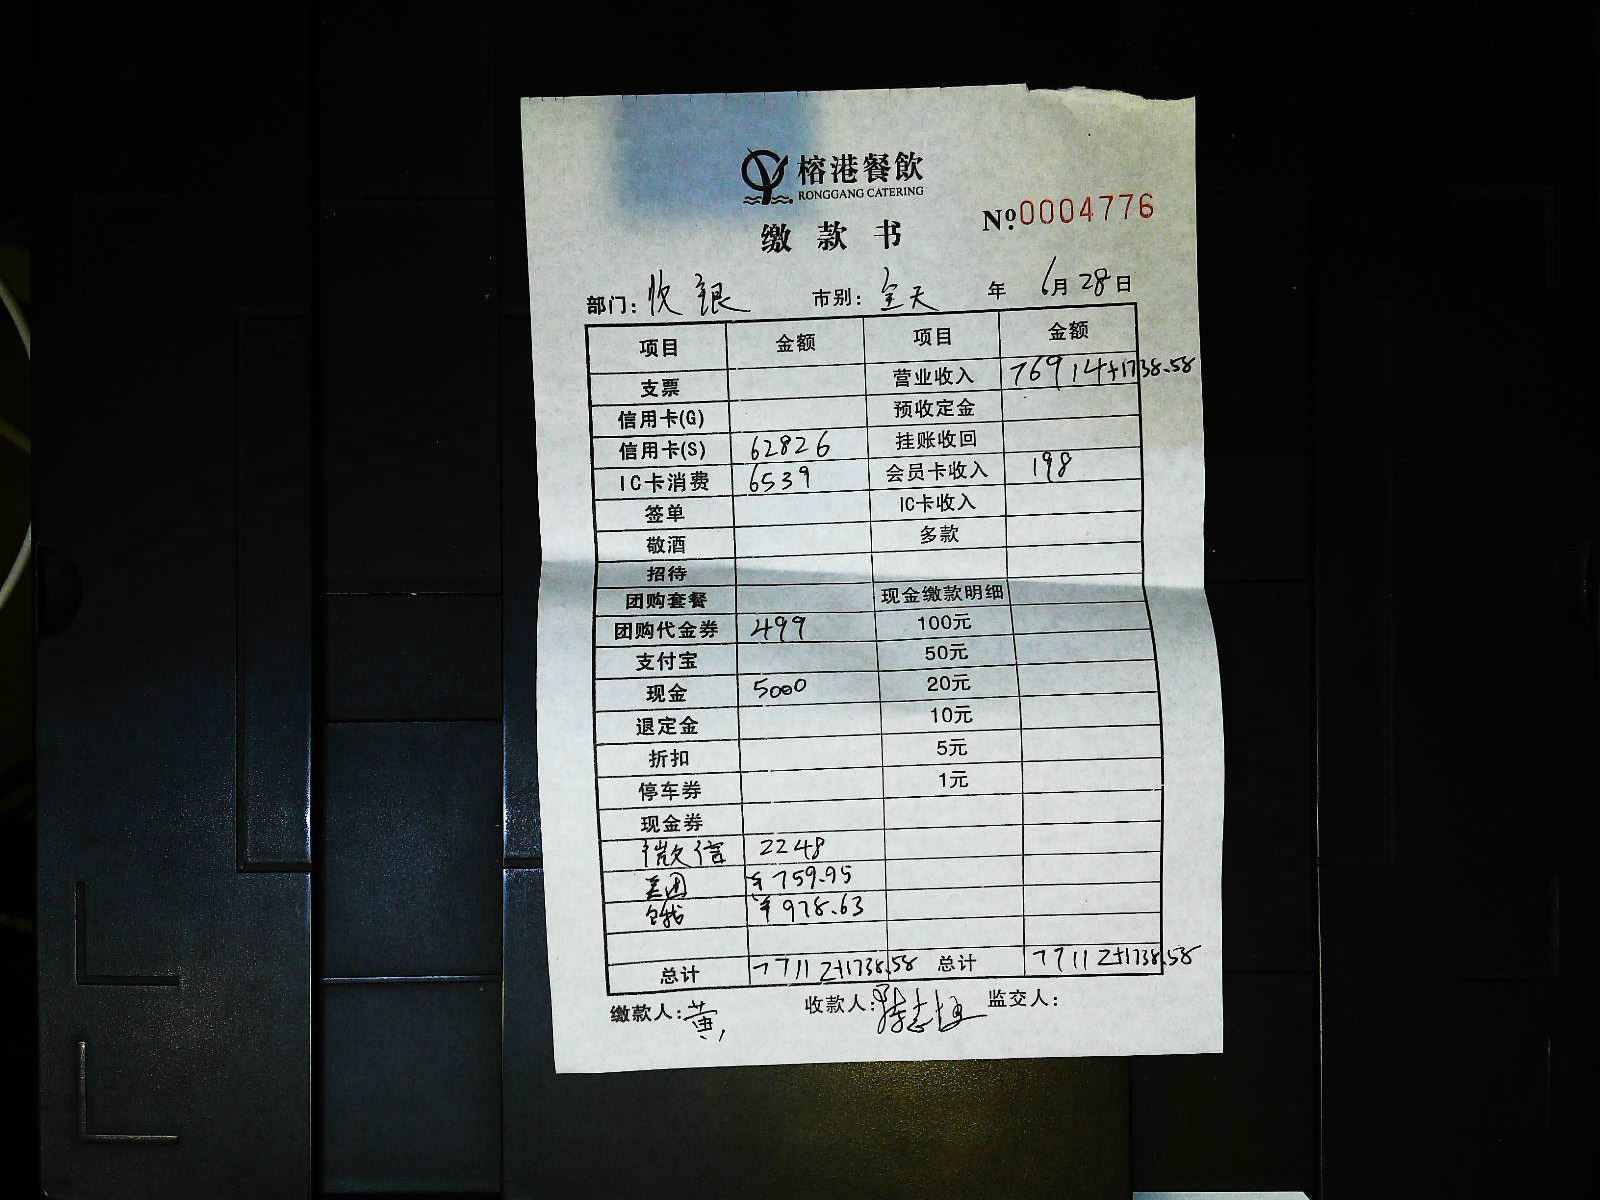 榕港餐飲
RONGGANG CATERING
缴款书 №0004776
部门：收银 市别：全天 年 6月28日
项目 金额 项目 金额
支票 营业收入 76914+1738.58
信用卡(G) 预收定金
信用卡(S) 62826 挂账收回
IC卡消费 6539 会员卡收入 198
签单 IC卡收入
敬酒 多款
招待
团购套餐 现金缴款明细
团购代金券 499 100元
支付宝 50元
现金 5000 20元
退定金 10元
折扣 5元
停车券 1元
现金券
微信 2248
美团 ¥759.95
饿 ¥978.63
总计 77112+1738.58 总计 77112+1738.58
缴款人：黄 收款人： 监交人：